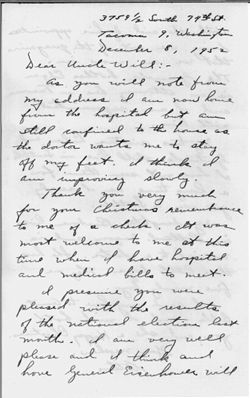 3759½ South 79th St.
Tacoma 9, Washington
December 8, 1952
Dear Uncle Will:-
As you will note from
my address I am now home
from the hospital but am
still confined to the house as
the doctor wants me to stay
off my feet. I think I
am improving slowly.
Thank you very much
for your Christmas remembrance
to me of a check. It was
most welcome to me at this
time when I have hospital
and medical bills to meet.
I presume you were
pleased with the results
of the national election last
month. I am very well
please and I think and
hope General Eisenhower will